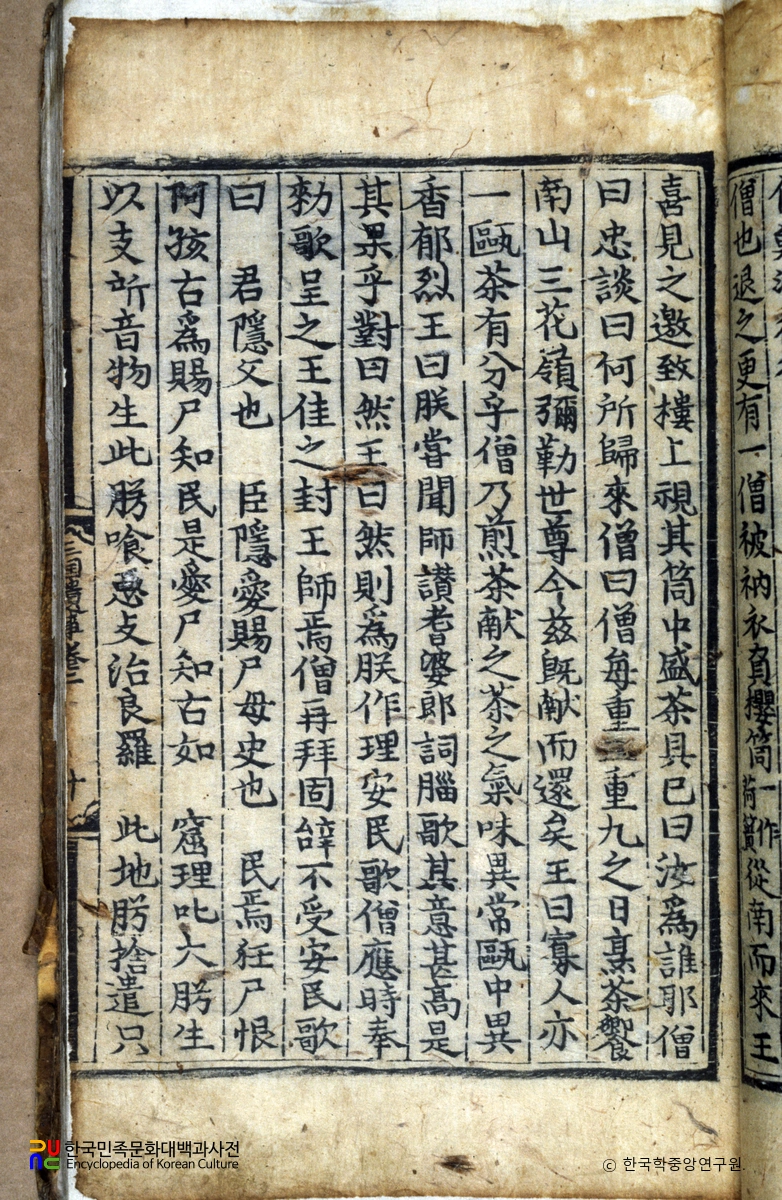 僧也退之更有一僧被衲衣負櫻筒一作荷簣從南而來王
喜見之邀致樓上視其筒中盛茶具已曰汝爲誰耶僧
曰忠談曰何所歸來僧曰僧每重三重九之日烹茶饗
南山三花嶺彌勒世尊今玆旣献而還矣王曰寡人亦
一甌茶有分乎僧乃煎茶献之茶之氣味異常甌中異
香郁烈王曰朕嘗聞師讃耆婆郎詞腦歌其意甚高是
其果乎對曰然王曰然則爲朕作理安民歌僧應時奉
勑歌呈之王佳之封王師焉僧再拜固辞不受安民歌
曰 君隱父也 臣隱愛賜尸母史也 民焉狂尸恨
阿孩古爲賜尸知民是愛尸知古如 窟理叱大肹生
以支所音物生此肹喰惡攴治良羅 此地肹捨遣只
三國遺事卷二 十
한국민족문화대백과사전
Encyclopedia of Korean Culture
© 한국학중앙연구원